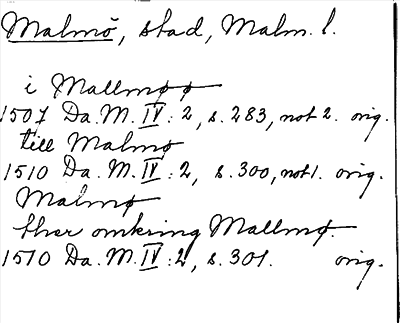 Malmö, stad, Malm. l.
i Mallmøø
1507 Da. M. IV: 2, s. 283, not 2. orig.
till Malmø
1510 Da. M. IV: 2, s. 300, not 1. orig.
Malmø
ther omkring Mallmø.
1510 Da. M. IV: 2, s. 301. orig.